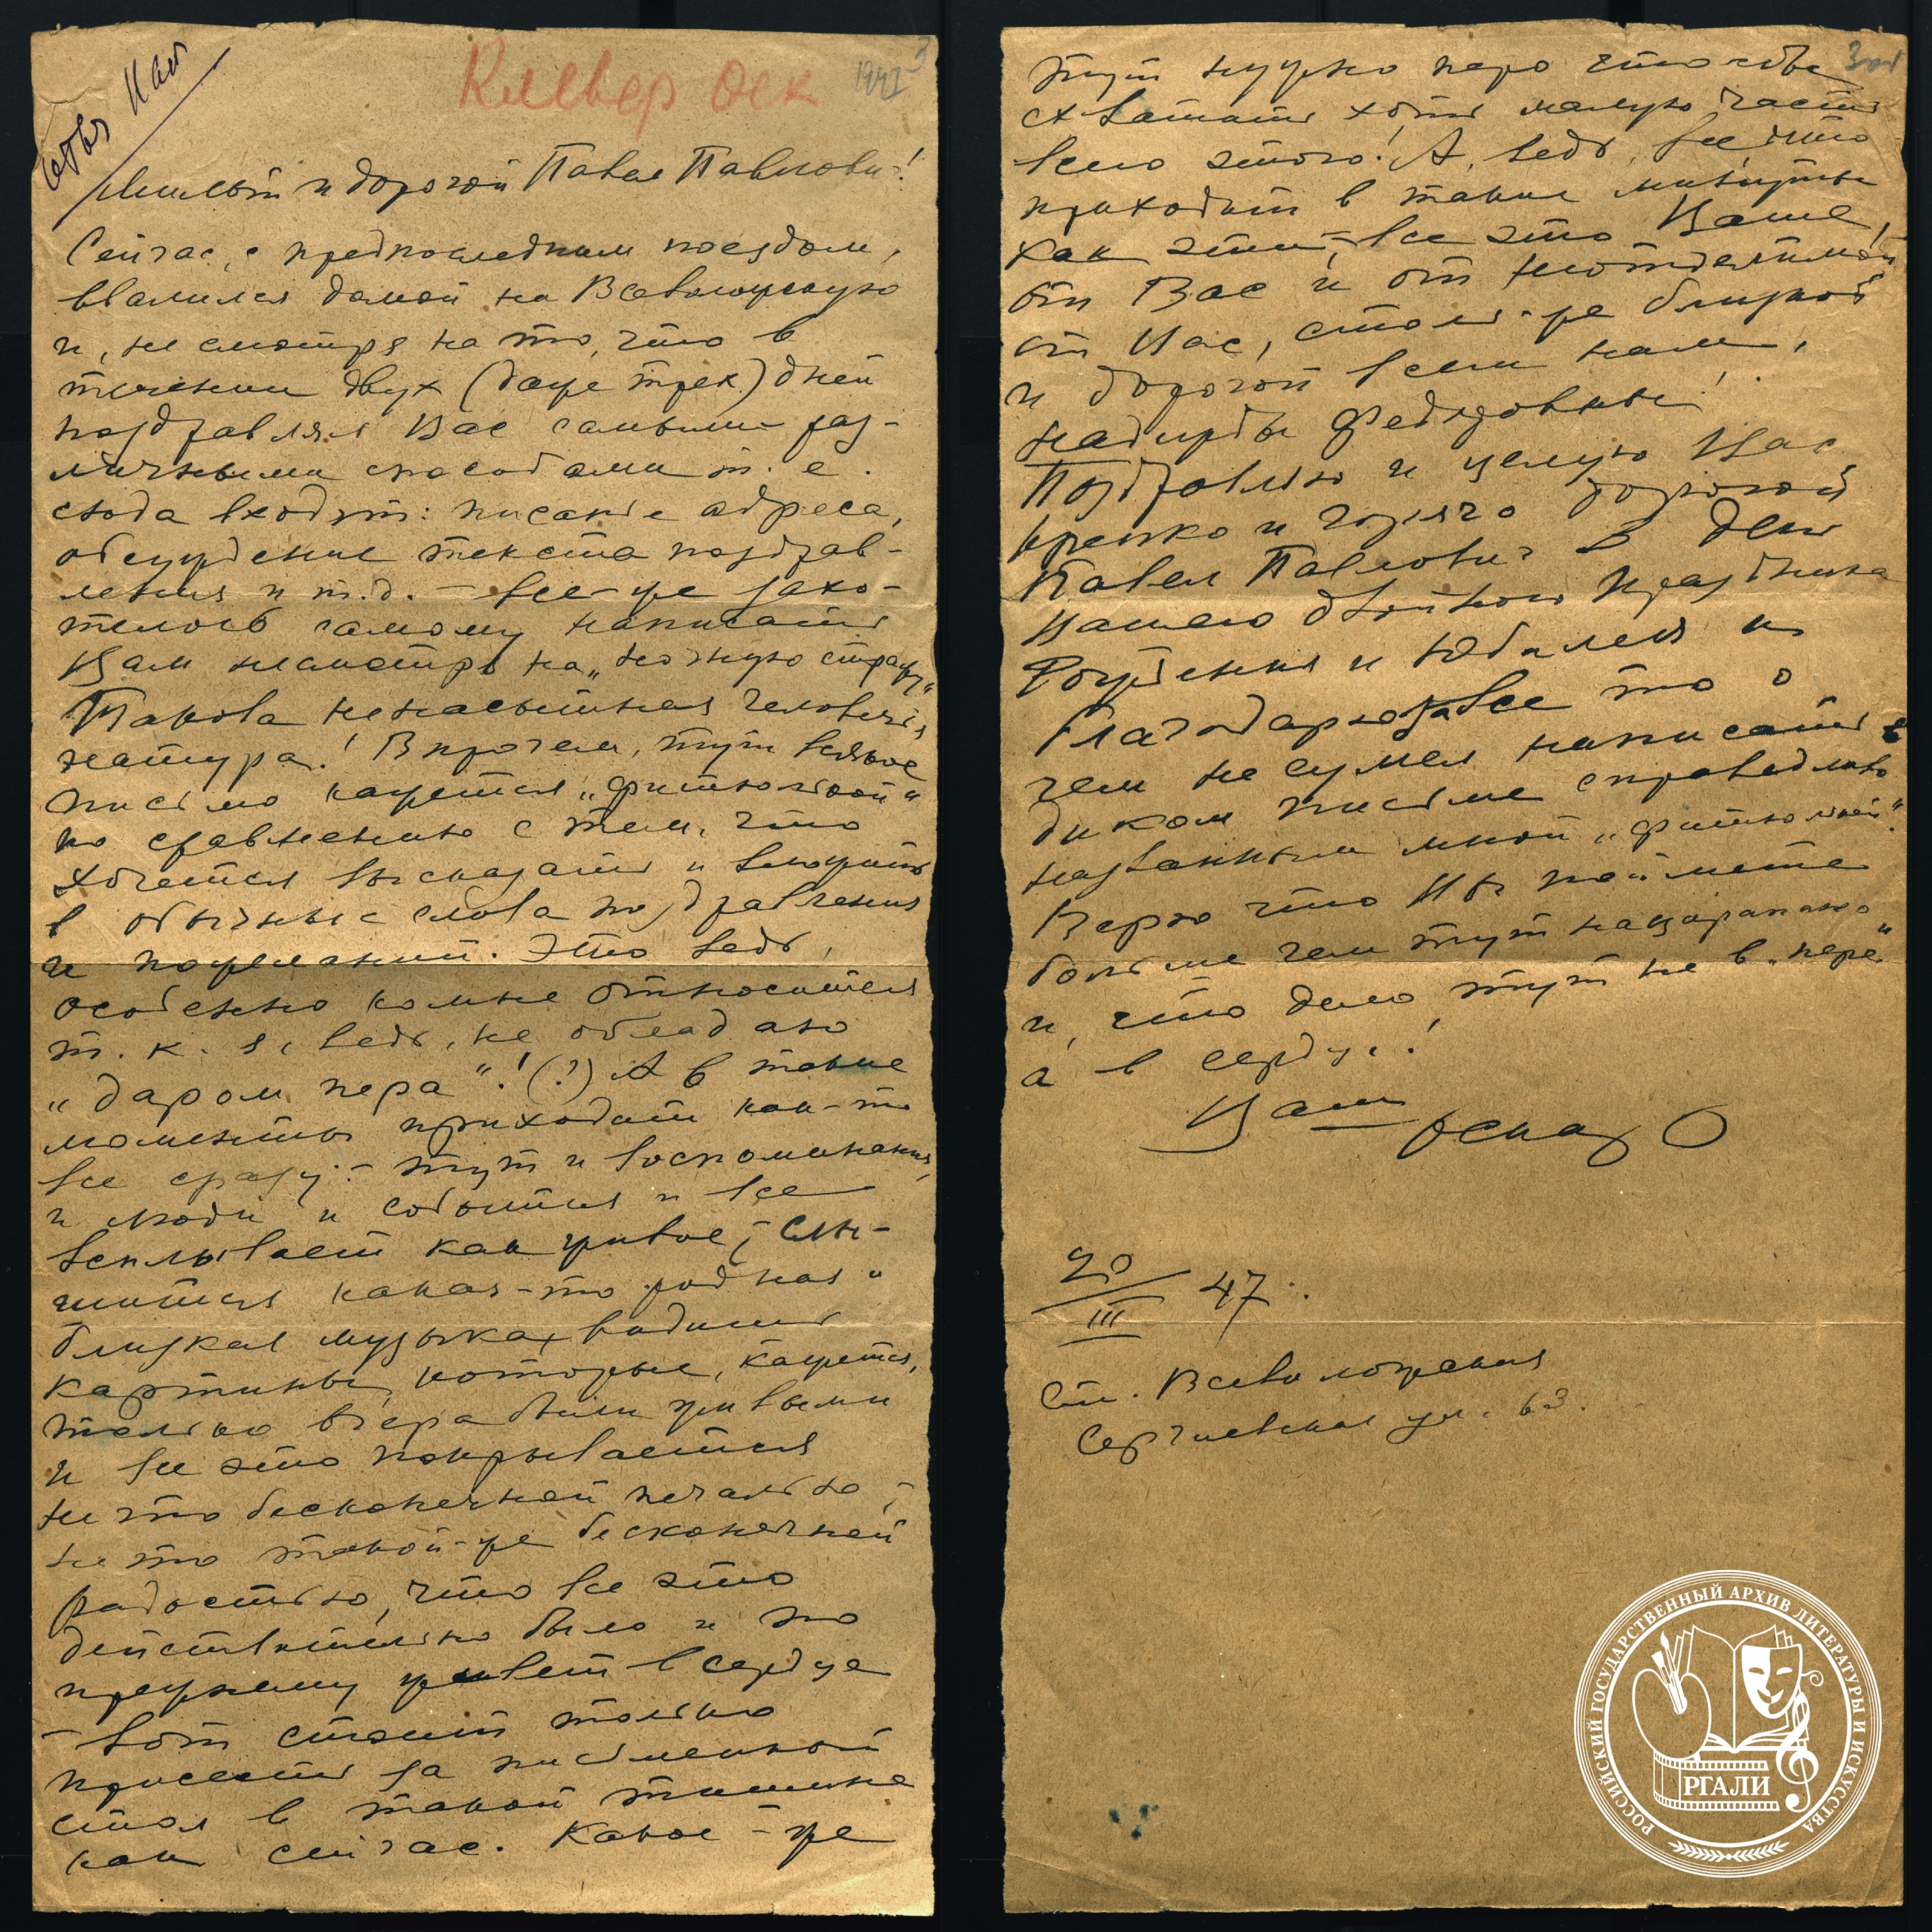 Клевер Оск
1947
3
Милый и дорогой Павел Павлович!
Сейчас, с предпоследним поездом,
ввалился домой на Всеволожскую
и, не смотря на то, что в
течении двух (даже трех) дней
поздравлял Вас самыми раз-
личными способами т. е.
сюда входят: писание адреса,
обсуждение текста поздрав-
ления и т.д. – все-же захо-
телось самому написать
Вам несмотря на „ночную страду"
Такова ненасытная человечья
натура! Впрочем, тут всякое
письмо кажется „фитюлькой"
по сравнению с тем, что
хочется высказать и вложить
в обычные слова поздравления
и пожеланий. Это ведь,
особенно ко мне относится
т. к. я, ведь, не обладаю
„даром пера"!(!) А в такие
моменты приходит как-то
все сразу: – тут и воспоминания,
и люди и события и все
всплывает как живое, – слы-
шится какая-то родная и
близкая музыка, видишь
картины, которые, кажется,
только вчера были живыми
и все это покрывается
не то бесконечной печалью –
не то такой-же бесконечной
радостью, что все это
действительно было и по
прежнему живет в сердце
– вот стоит только
присесть за письменный
стол в такой тишине
как сейчас. Какое-же
тут нужно перо чтобы
схватить хотя малую часть
всего этого! А, ведь, все это
приходит в такие минуты
как эти, – все это Ваше,
от Вас и от неотделимой
от Вас, столь-же близкой
и дорогой всем нам,
Надежды Федоровны!
Поздравляю и целую Вас
крепко и горячо дорогой
Павел Павлович в день
Вашего двойного праздника
Рождения и Юбилея и
благодарю за все то о
чем не сумел написать в
диком письме справедливо
названным мной „фитюлькой".
Верю что Вы поймете
больше чем тут нацарапано
и, что дело, тут не в „пере"
а в сердце!
Ваш Оскар
20/III 47.
Ст. Всеволожская
Сергиевская ул. 63.
РОССИЙСКИЙ ГОСУДАРСТВЕННЫЙ АРХИВ ЛИТЕРАТУРЫ И ИСКУССТВА
РГАЛИ